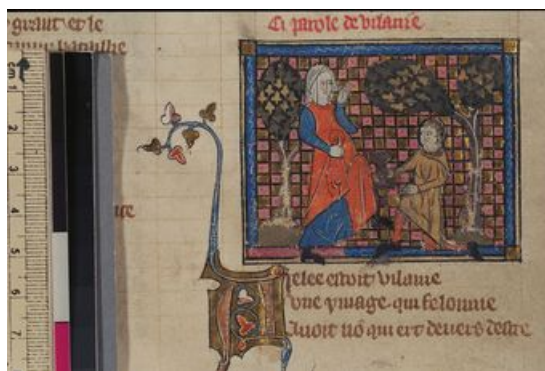 et le
Ci parole de vilanie
elee estoit vilanie
vne ymage. qui felonnie
Auoit nō qui ert deuers destre
1
2
3
4
5
6
7